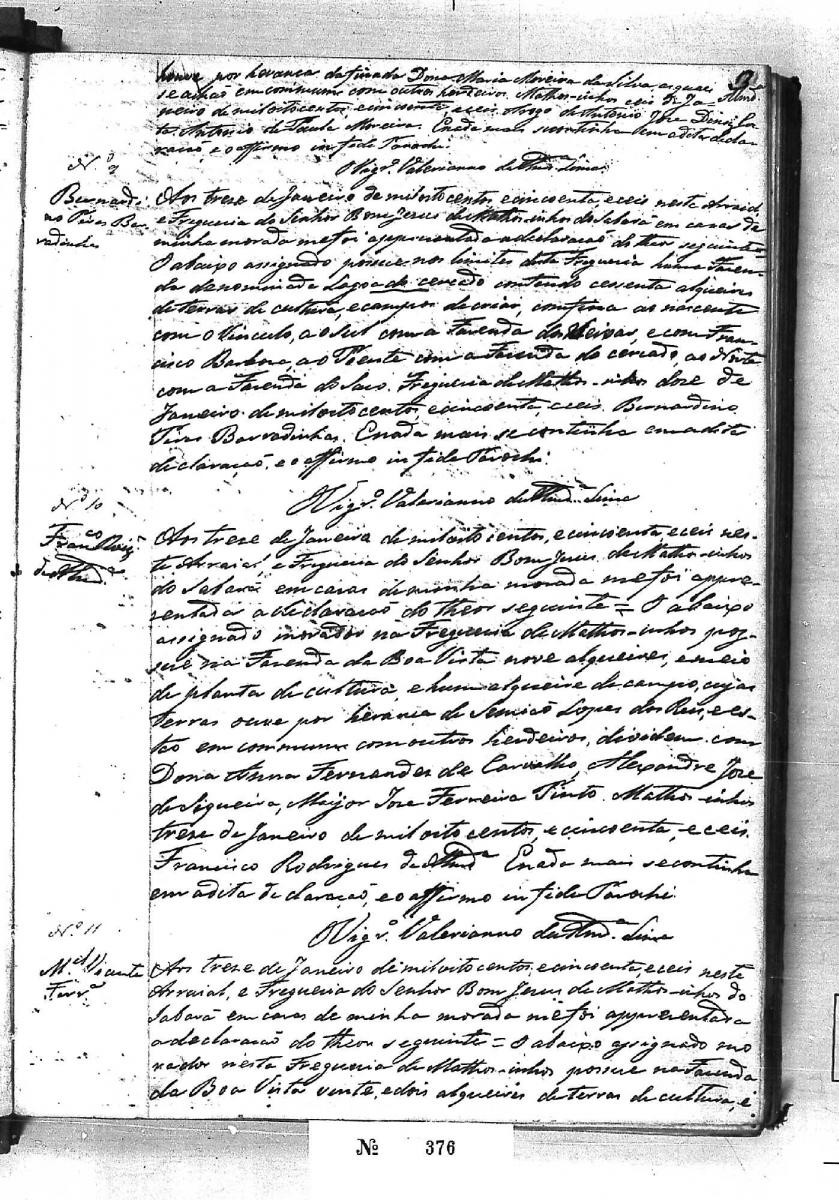 houve por herança da finada Dona Maria Moreira da Silva, a qual
se achão em commum com outros herdeiros. Mathosinhos ceis de Ja-
neiro de mil oitocentos e cincoenta e ceis. Arogo de Antonio José
Antonio de Paula Moreira. Enada mais se continha em adita decla-
ração, e o affirmo in fide Parochi.
O Vigrº. Valerianno de Almdª. Lima
Nº 9
Bernardi-
no Pires Ba-
rradinha
Aos trese de Janeiro de mil oitocentos, e cincoenta, e ceis neste Arraial,
e Freguesia do Senhor Bom Jesus de Mathosinhos do Sabará em casas de
minha morada me foi appresentada a declaração do theor seguinte =
O abaixo assignado possue nos limites desta Freguesia huma Fasen-
da denominada Lagoa do cercado contendo cessenta alqueires
de terras de cultura, e campos de criar, confina ao nascente
com o Vinculo, ao Sul com a Fasenda das Neivas, e com Fran-
cisco Barbosa, ao Poente com a Fasenda do cercado, ao Norte
com a Fasenda do Saco. Freguesia de Mathosinhos dose de
Janeiro de mil oitocentos, e cincoenta, e ceis. Bernardino
Pires Barradinhas. Enada mais se continha em adita
declaração, e o affirmo in fide Parochi.
O Vigrº. Valerianno de Almdª. Lima
Nº 10
Francº Roiz
de Almdª
Aos trese de Janeiro de mil oitocentos, e cincoenta, e ceis nes-
te Arraial, e Freguesia do Senhor Bom Jesus de Mathosinhos
do Sabará em casas de minha morada me foi appre-
sentada a declaração do theor seguinte = O abaixo
assignado morador na Freguesia de Mathosinhos pos-
sue na Fasenda da Boa Vista nove alqueires, e meio
de planta de cultura, e hum alqueire de campo, cujas
terras ouve por herança de Simião Lopes dos Reis, e es-
tão em commum com outros herdeiros, dividem com
Dona Anna Fernandes de Carvalho, Alexandre José
de Siqueira, Maijor José Ferreira Pinto. Mathosinhos
trese de Janeiro de mil oitocentos, e cincoenta, e ceis.
Francisco Rodrigues de Almdª. Enada mais se continha
em adita declaração, e o affirmo in fide Parochi.
O Vigrº. Valerianno de Almdª. Lima
Nº 11
Mel Vicente
Ferrª
Aos trese de Janeiro de mil oitocentos e cincoenta, e ceis neste
Arraial, e Freguesia do Senhor Bom Jesus de Mathosinhos do
Sabará em casas de minha morada me foi appresentada
a declaração do theor seguinte = O abaixo assignado mo-
rador nesta Freguesia de Mathosinhos possue na Fasenda
da Boa Vista vinte, e dois alqueires de terras de cultura, e
Nº 376